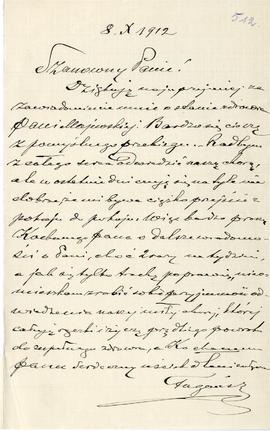 512.
8. X 1912
Szanowny Panie!
Dziękuję najuprzejmiej za
zawiadomienie mnie o stanie zdrowia
Pani Majewskiej. Bardzo się cieszę
z pomyślnego przebiegu. Radbym
z całego serca odwiedzić naszą chorą,
ale w ostatnie dni czuję się na tyle nie
dobrze, że mi bywa ciężko przejść z
pokoju do pokoju. Więc bardzo proszę
Kochanego Pana o dalsze wiadomo-
ści o Pani, choć 2 razy na tydzień,
a jak się tylko trochę poprawię, nie o-
mieszkam zrobić sobie przyjemność od-
wiedzenia naszej miłej chorej, której
całuję rączki i życzę prędkiego powrotu
do zupełnego zdrowia, a Kochanemu
Panu serdeczny uścisk dłoni